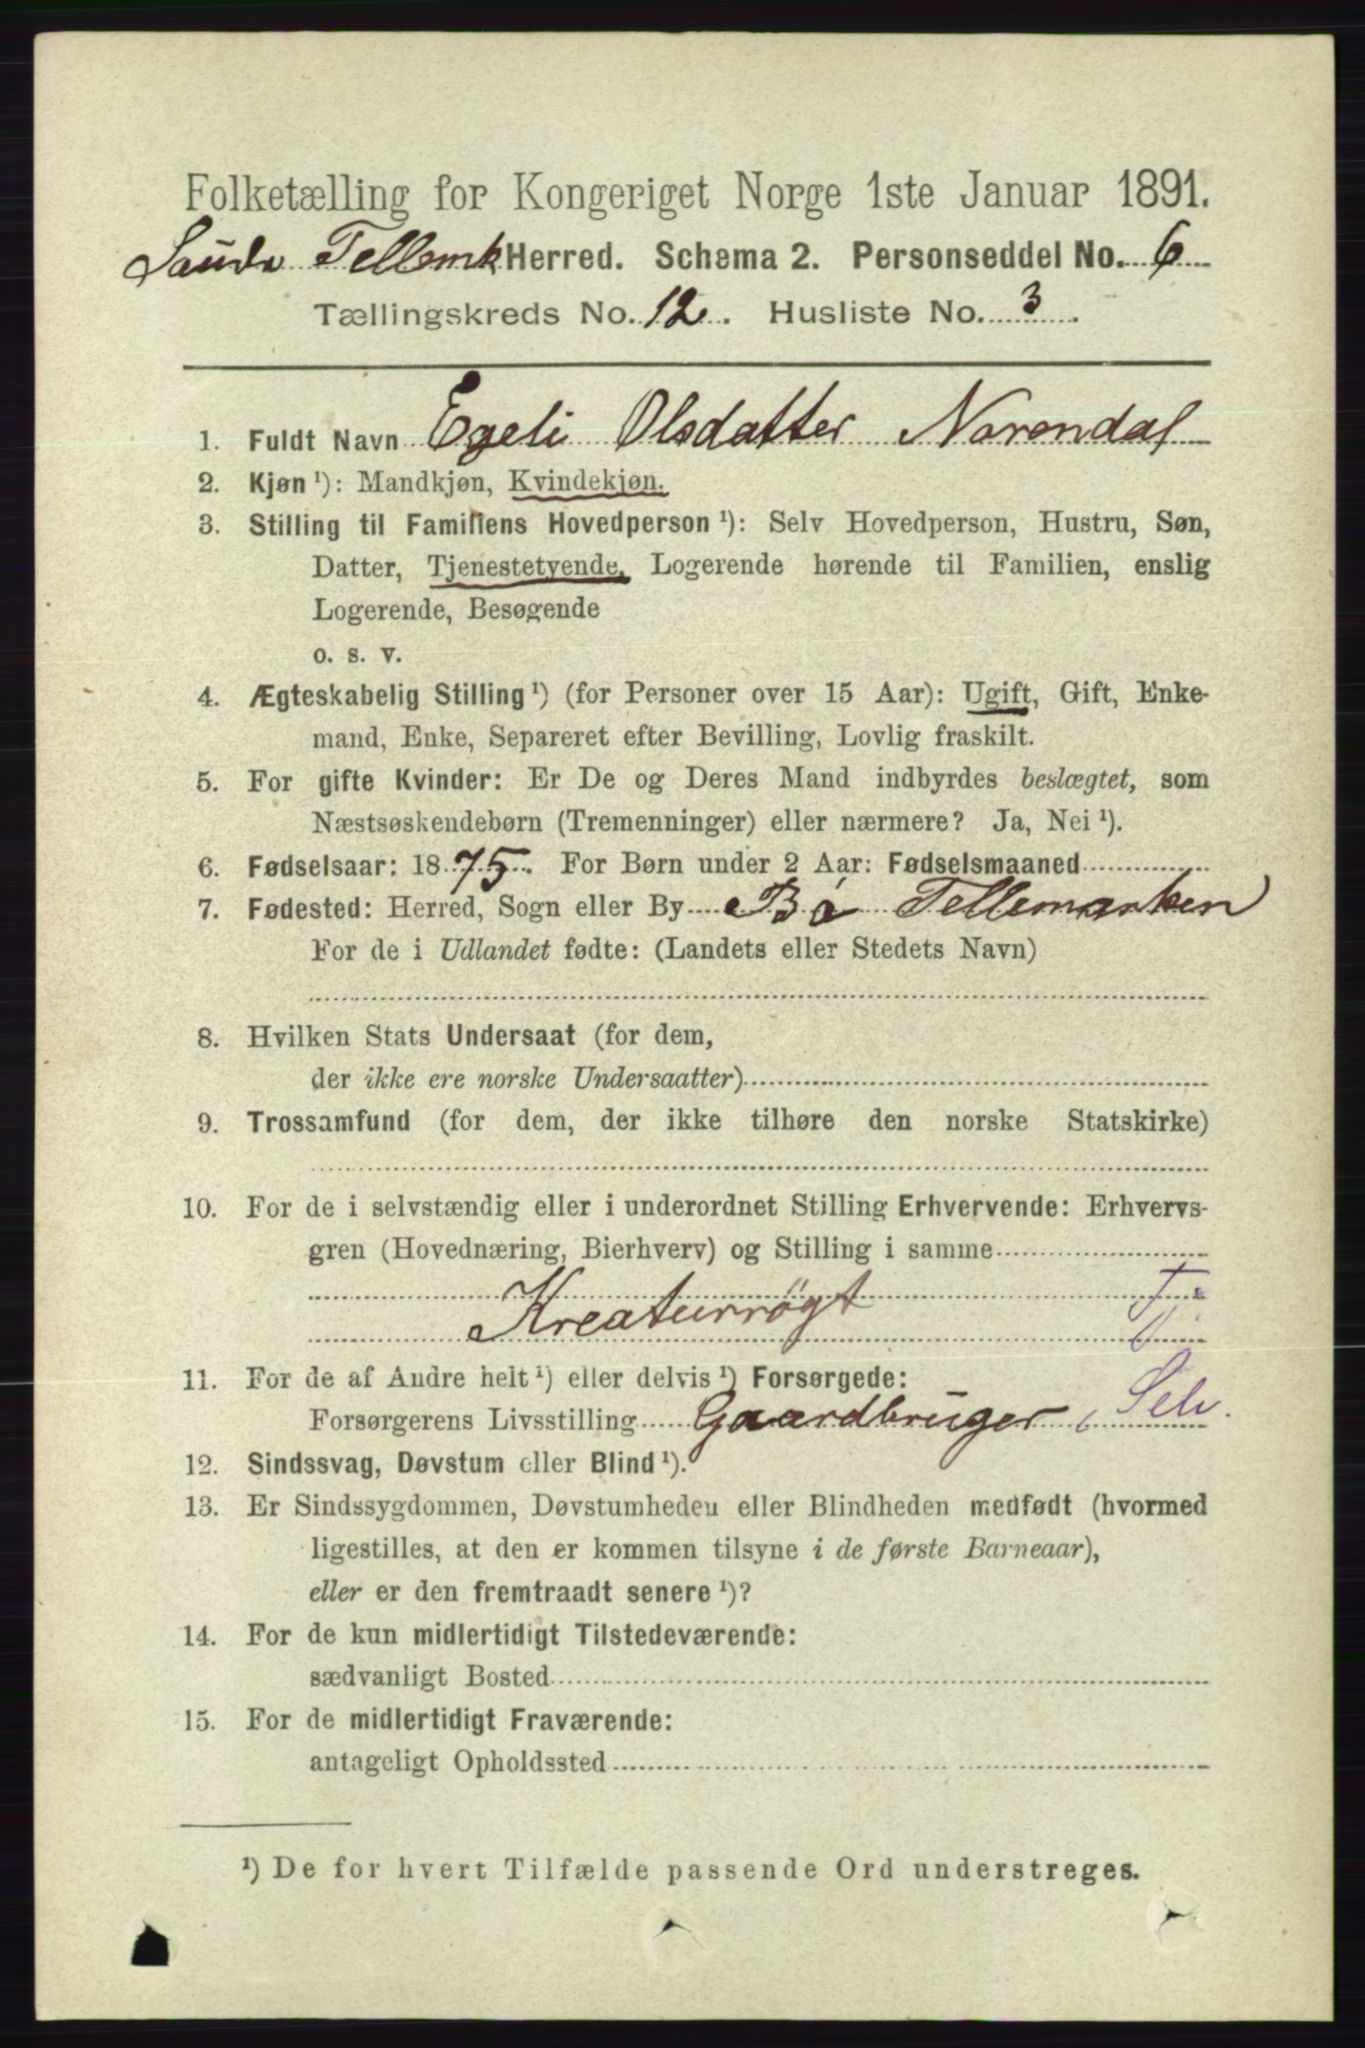 Folketælling for Kongeriget Norge 1ste Januar 1891.
Saude Tellemk Herred. Schema 2. Personseddel No. 6
Tællingskreds No. 12. Husliste No. 3.
1. Fuldt Navn Egeli Olsdatter Norendal
2. Kjøn ¹): Mandkjøn, Kvindekjøn.
3. Stilling til Familiens Hovedperson ¹): Selv Hovedperson, Hustru, Søn,
Datter, Tjenestetyende, Logerende hørende til Familien, enslig
Logerende, Besøgende
o. s. v.
4. Ægteskabelig Stilling ¹) (for Personer over 15 Aar): Ugift, Gift, Enke-
mand, Enke, Separeret efter Bevilling, Lovlig fraskilt.
5. For gifte Kvinder: Er De og Deres Mand indbyrdes beslægtet, som
Næstsøskendebørn (Tremenninger) eller nærmere? Ja, Nei ¹).
6. Fødselsaar: 1875. For Børn under 2 Aar: Fødselsmaaned
7. Fødested: Herred, Sogn eller By Bö Tellemarken
For de i Udlandet fødte: (Landets eller Stedets Navn)
8. Hvilken Stats Undersaat (for dem,
der ikke ere norske Undersaatter)
9. Trossamfund (for dem, der ikke tilhøre den norske Statskirke)
10. For de i selvstændig eller i underordnet Stilling Erhvervende: Erhvervs-
gren (Hovednæring, Bierhverv) og Stilling i samme
Kreaturrögt Tj.
11. For de af Andre helt ¹) eller delvis ¹) Forsørgede:
Forsørgerens Livsstilling Gaardbruger, Selv.
12. Sindssvag, Døvstum eller Blind ¹).
13. Er Sindssygdommen, Døvstumheden eller Blindheden medfødt (hvormed
ligestilles, at den er kommen tilsyne i de første Barneaar),
eller er den fremtraadt senere ¹)?
14. For de kun midlertidigt Tilstedeværende:
sædvanligt Bosted
15. For de midlertidigt Fraværende:
antageligt Opholdssted
¹) De for hvert Tilfælde passende Ord understreges.